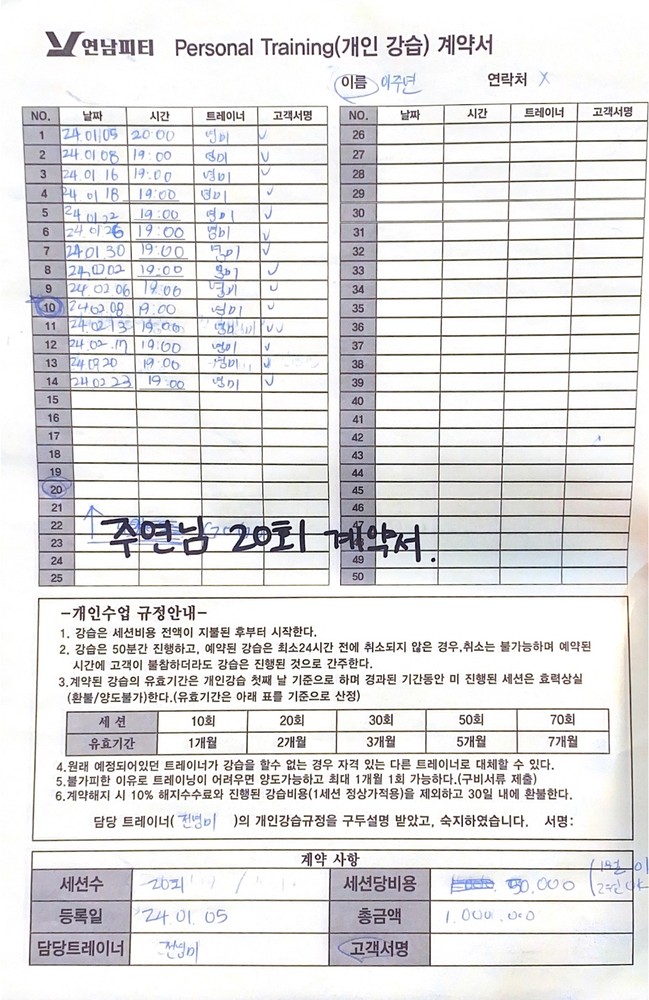 연남피티 Personal Training(개인 강습) 계약서
이름 이주연 연락처 X
NO. 날짜 시간 트레이너 고객서명 NO. 날짜 시간 트레이너 고객서명
1 24.01.05 20:00 26
2 24.01.08 19:00 27
3 24.01.16 19:00 28
4 24.01.18 19:00 29
5 24.01.22 19:00 30
6 24.01.26 19:00 31
7 24.01.30 19:00 32
8 24.02.02 19:00 33
9 24.02.06 19:00 34
10 24.02.08 19:00 35
11 24.02.13 19:00 36
12 24.02.17 19:00 37
13 24.02.20 19:00 38
14 24.02.23 19:00 39
15 40
16 41
17 42
18 43
19 44
20 45
21 46
22 47
23
주연님 20회 계약서.
24 49
25 50
-개인수업 규정안내-
1. 강습은 세션비용 전액이 지불된 후부터 시작한다.
2. 강습은 50분간 진행하고, 예약된 강습은 최소24시간 전에 취소되지 않은 경우,취소는 불가능하며 예약된
시간에 고객이 불참하더라도 강습은 진행된 것으로 간주한다.
3.계약된 강습의 유효기간은 개인강습 첫째 날 기준으로 하며 경과된 기간동안 미 진행된 세션은 효력상실
(환불/양도불가)한다.(유효기간은 아래 표를 기준으로 산정)
세 션 10회 20회 30회 50회 70회
유효기간 1개월 2개월 3개월 5개월 7개월
4.원래 예정되어있던 트레이너가 강습을 할수 없는 경우 자격 있는 다른 트레이너로 대체할 수 있다.
5.불가피한 이유로 트레이닝이 어려우면 양도가능하고 최대 1개월 1회 가능하다.(구비서류 제출)
6.계약해지 시 10% 해지수수료와 진행된 강습비용(1세션 정상가적용)을 제외하고 30일 내에 환불한다.
담당 트레이너( )의 개인강습규정을 구두설명 받았고, 숙지하였습니다. 서명:
계약 사항
세션수 20회 세션당비용 50,000
등록일 24.01.05 총금액 1.000.000
담당트레이너 고객서명